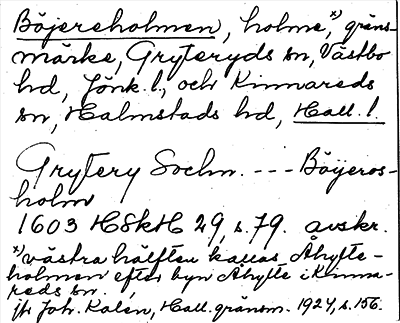 Böjereholmen, holme,ˣ⁾ gräns-
märke, Gryteryds sn, Västbo
hd, Jönk. l., och Kinnareds
sn, Halmstads hd, Hall. l.
Grytery Sochn. --- Böyeros-
holm
1603 HSkH 29, s. 79. avskr.
ˣ⁾västra hälften kallas Åhylte-
holmen efter byn Åhylte i Kinna-
reds sn.
jfr Joh. Kalén, Hall. gränsm. 1924, s. 156.